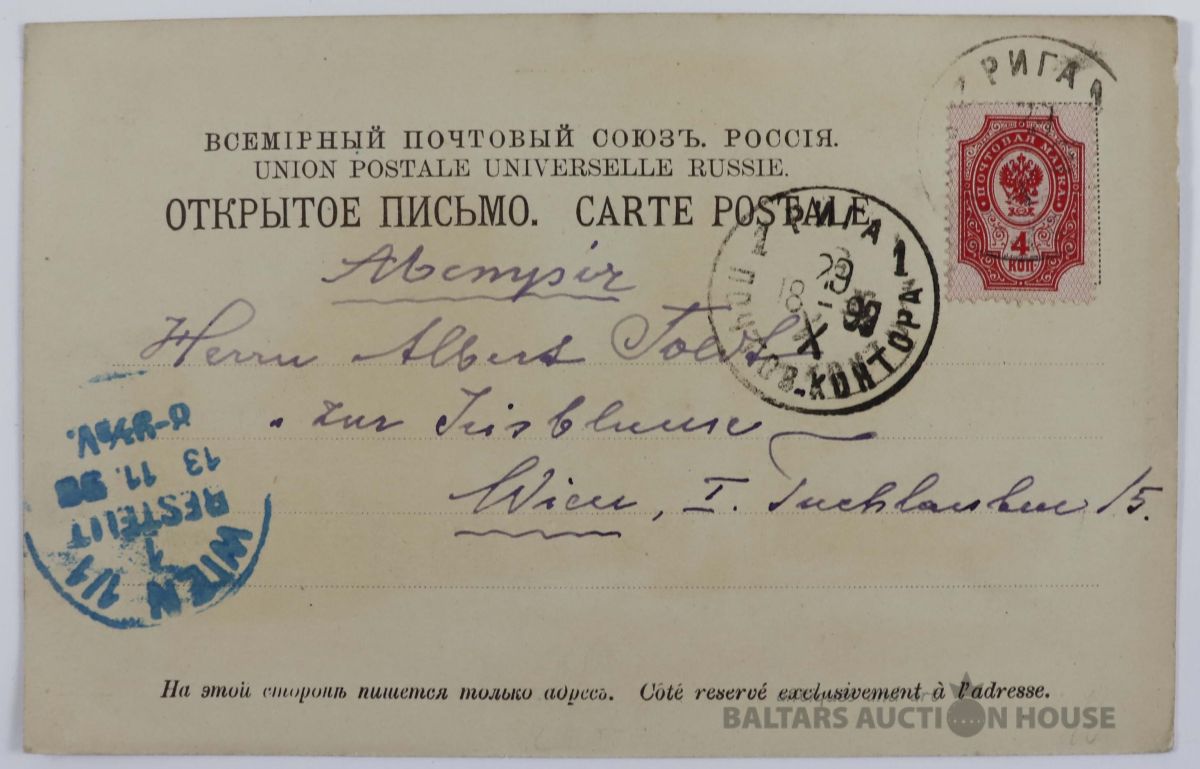 ВСЕМІРНЫЙ ПОЧТОВЫЙ СОЮЗЪ. РОССІЯ.
UNION POSTALE UNIVERSELLE RUSSIE.
ОТКРЫТОЕ ПИСЬМО. CARTE POSTALE
Herrn Albert
"Zur Irisblume
Wien, I. Tuchlauben 15.
РИГА 1
ПОЧТОВАЯ МАРКА
4
КОП
РИГА 1
29
X
КОНТОРА
8-9½V.
13 11.
BESTELLT
WIEN 1/1
На этой сторонѣ пишется только адресъ. Côté reservé exclusivement à l'adresse.
BALTARS AUCTION HOUSE